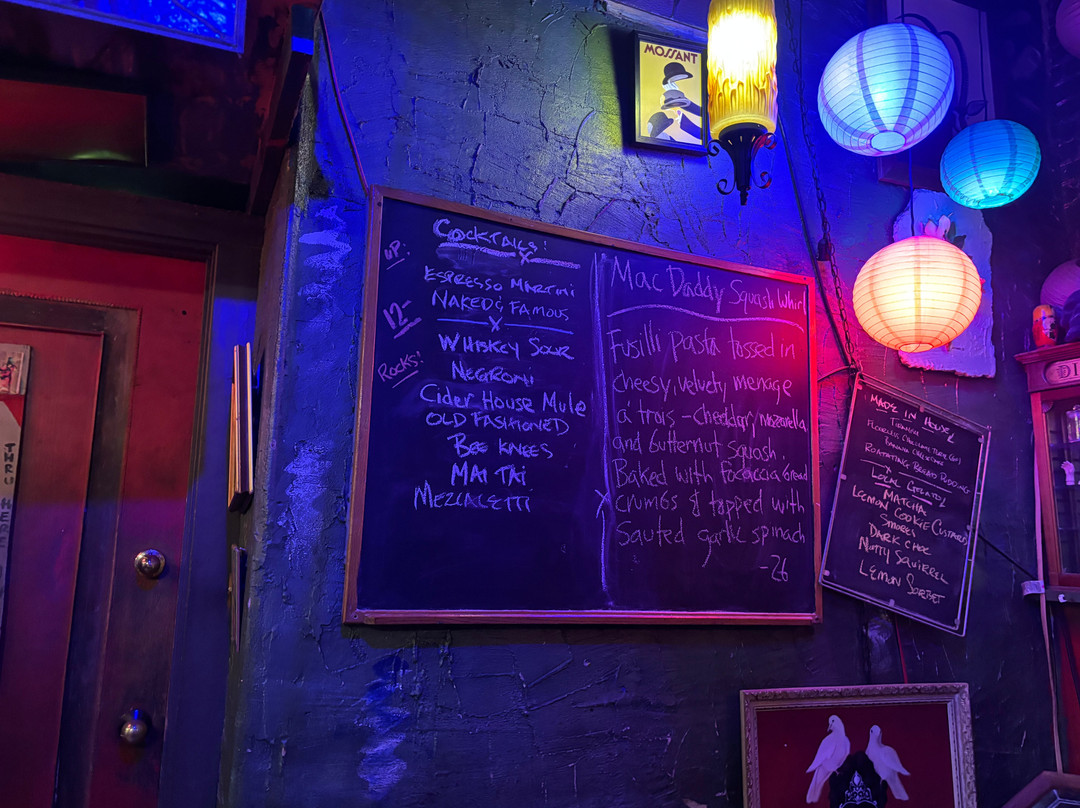 MOSSANT
COCKTAILS:
UP:
ESPRESSO MARTINI
NAKED & FAMOUS
12-
X
Rocks:
WHISKEY SOUR
NEGRONI
Cider House Mule
OLD FASHIONED
BEE KNEES
MAI TAI
MEZCALETTI
Mac Daddy Squash Whirl
Fusilli pasta tossed in
cheesy, velvety menage
a trois - cheddar, mozzarella
and butternut squash.
Baked with focaccia bread
crumbs & topped with
Sauted garlic spinach
-26
MADE IN HOUSE
TIRAMISU
FLOURLESS CHOCOLATE TORTE (GF)
BANANA CHEESECAKE
ROTATING BREAD PUDDING
X
LOCAL GELATO
MATCHA
LEMON COOKIE CUSTARD
SMORES
DARK CHOC
NUTTY SQUIRREL
LEMON SORBET
THRU
HERE